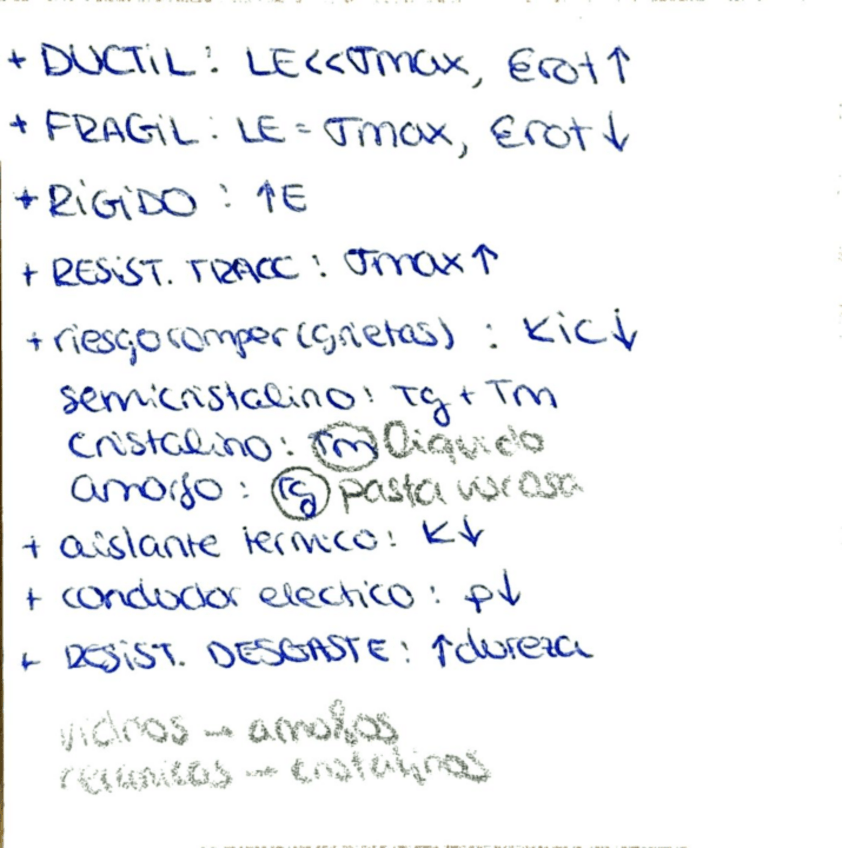 + DUCTiL: LE<<σmax, εrot↑
+ FRAGiL: LE = σmax, εrot↓
+ RiGiDO : ↑E
+ RESiST. TRACC: σmax↑
+ riesgo romper (grietas) : Kic↓
semicristalino: Tg + Tm
cristalino: Tm liquido
amorfo: Tg pasta viscosa
+ aislante termico: K↓
+ conductor electrico: ρ↓
+ RESiST. DESGASTE: ↑dureza
vidrios → amorfos
ceramicas → cristalinas